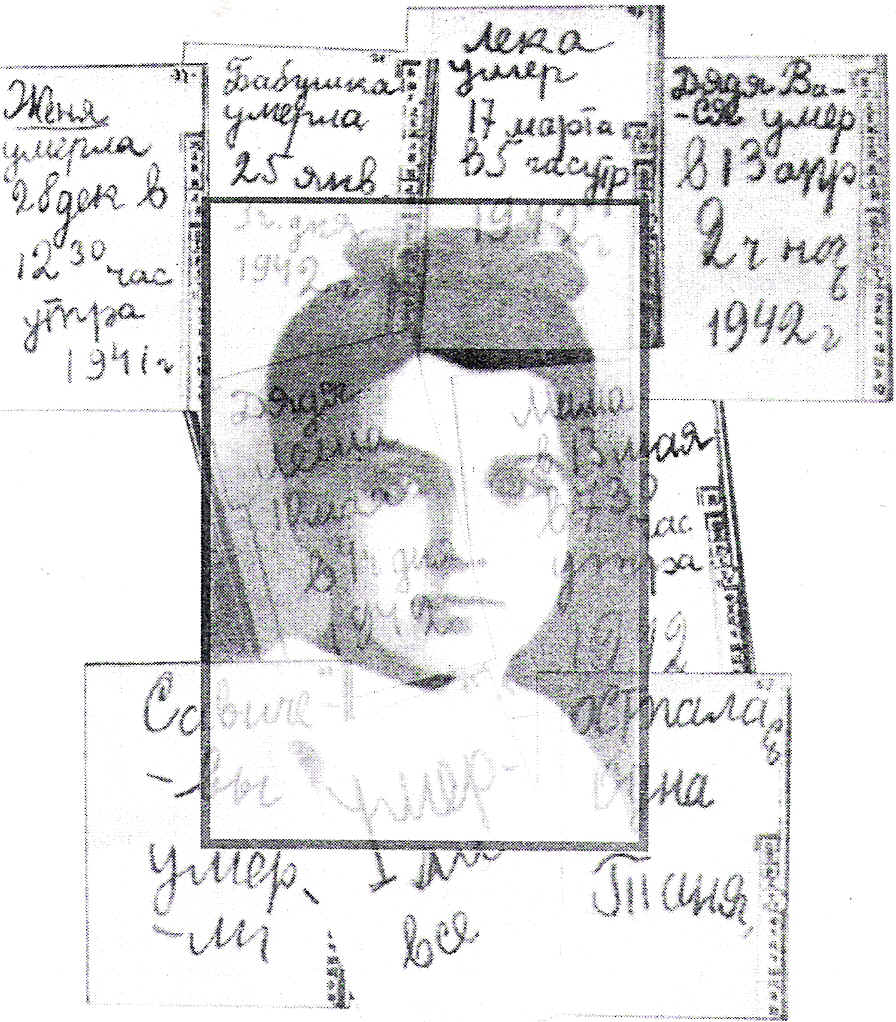 Женя
умерла
28 дек в
12 30 час
утра
1941 г
Бабушка
умерла
25 янв
3 ч. дня
1942 г
Лека
умер
17 марта
в 5 час утр
1942 г
Дядя Ва-
-ся умер
в 13 апр
2 ч ноч
ь
1942 г
Дядя
Леша
10 мая
в 4 ч дня
1942
Мама
в 13 мая
в 7 30
час
утра
1942
Савиче-
-вы
умер
-ли
умер-
ли
все
Остала
сь
одна
Таня